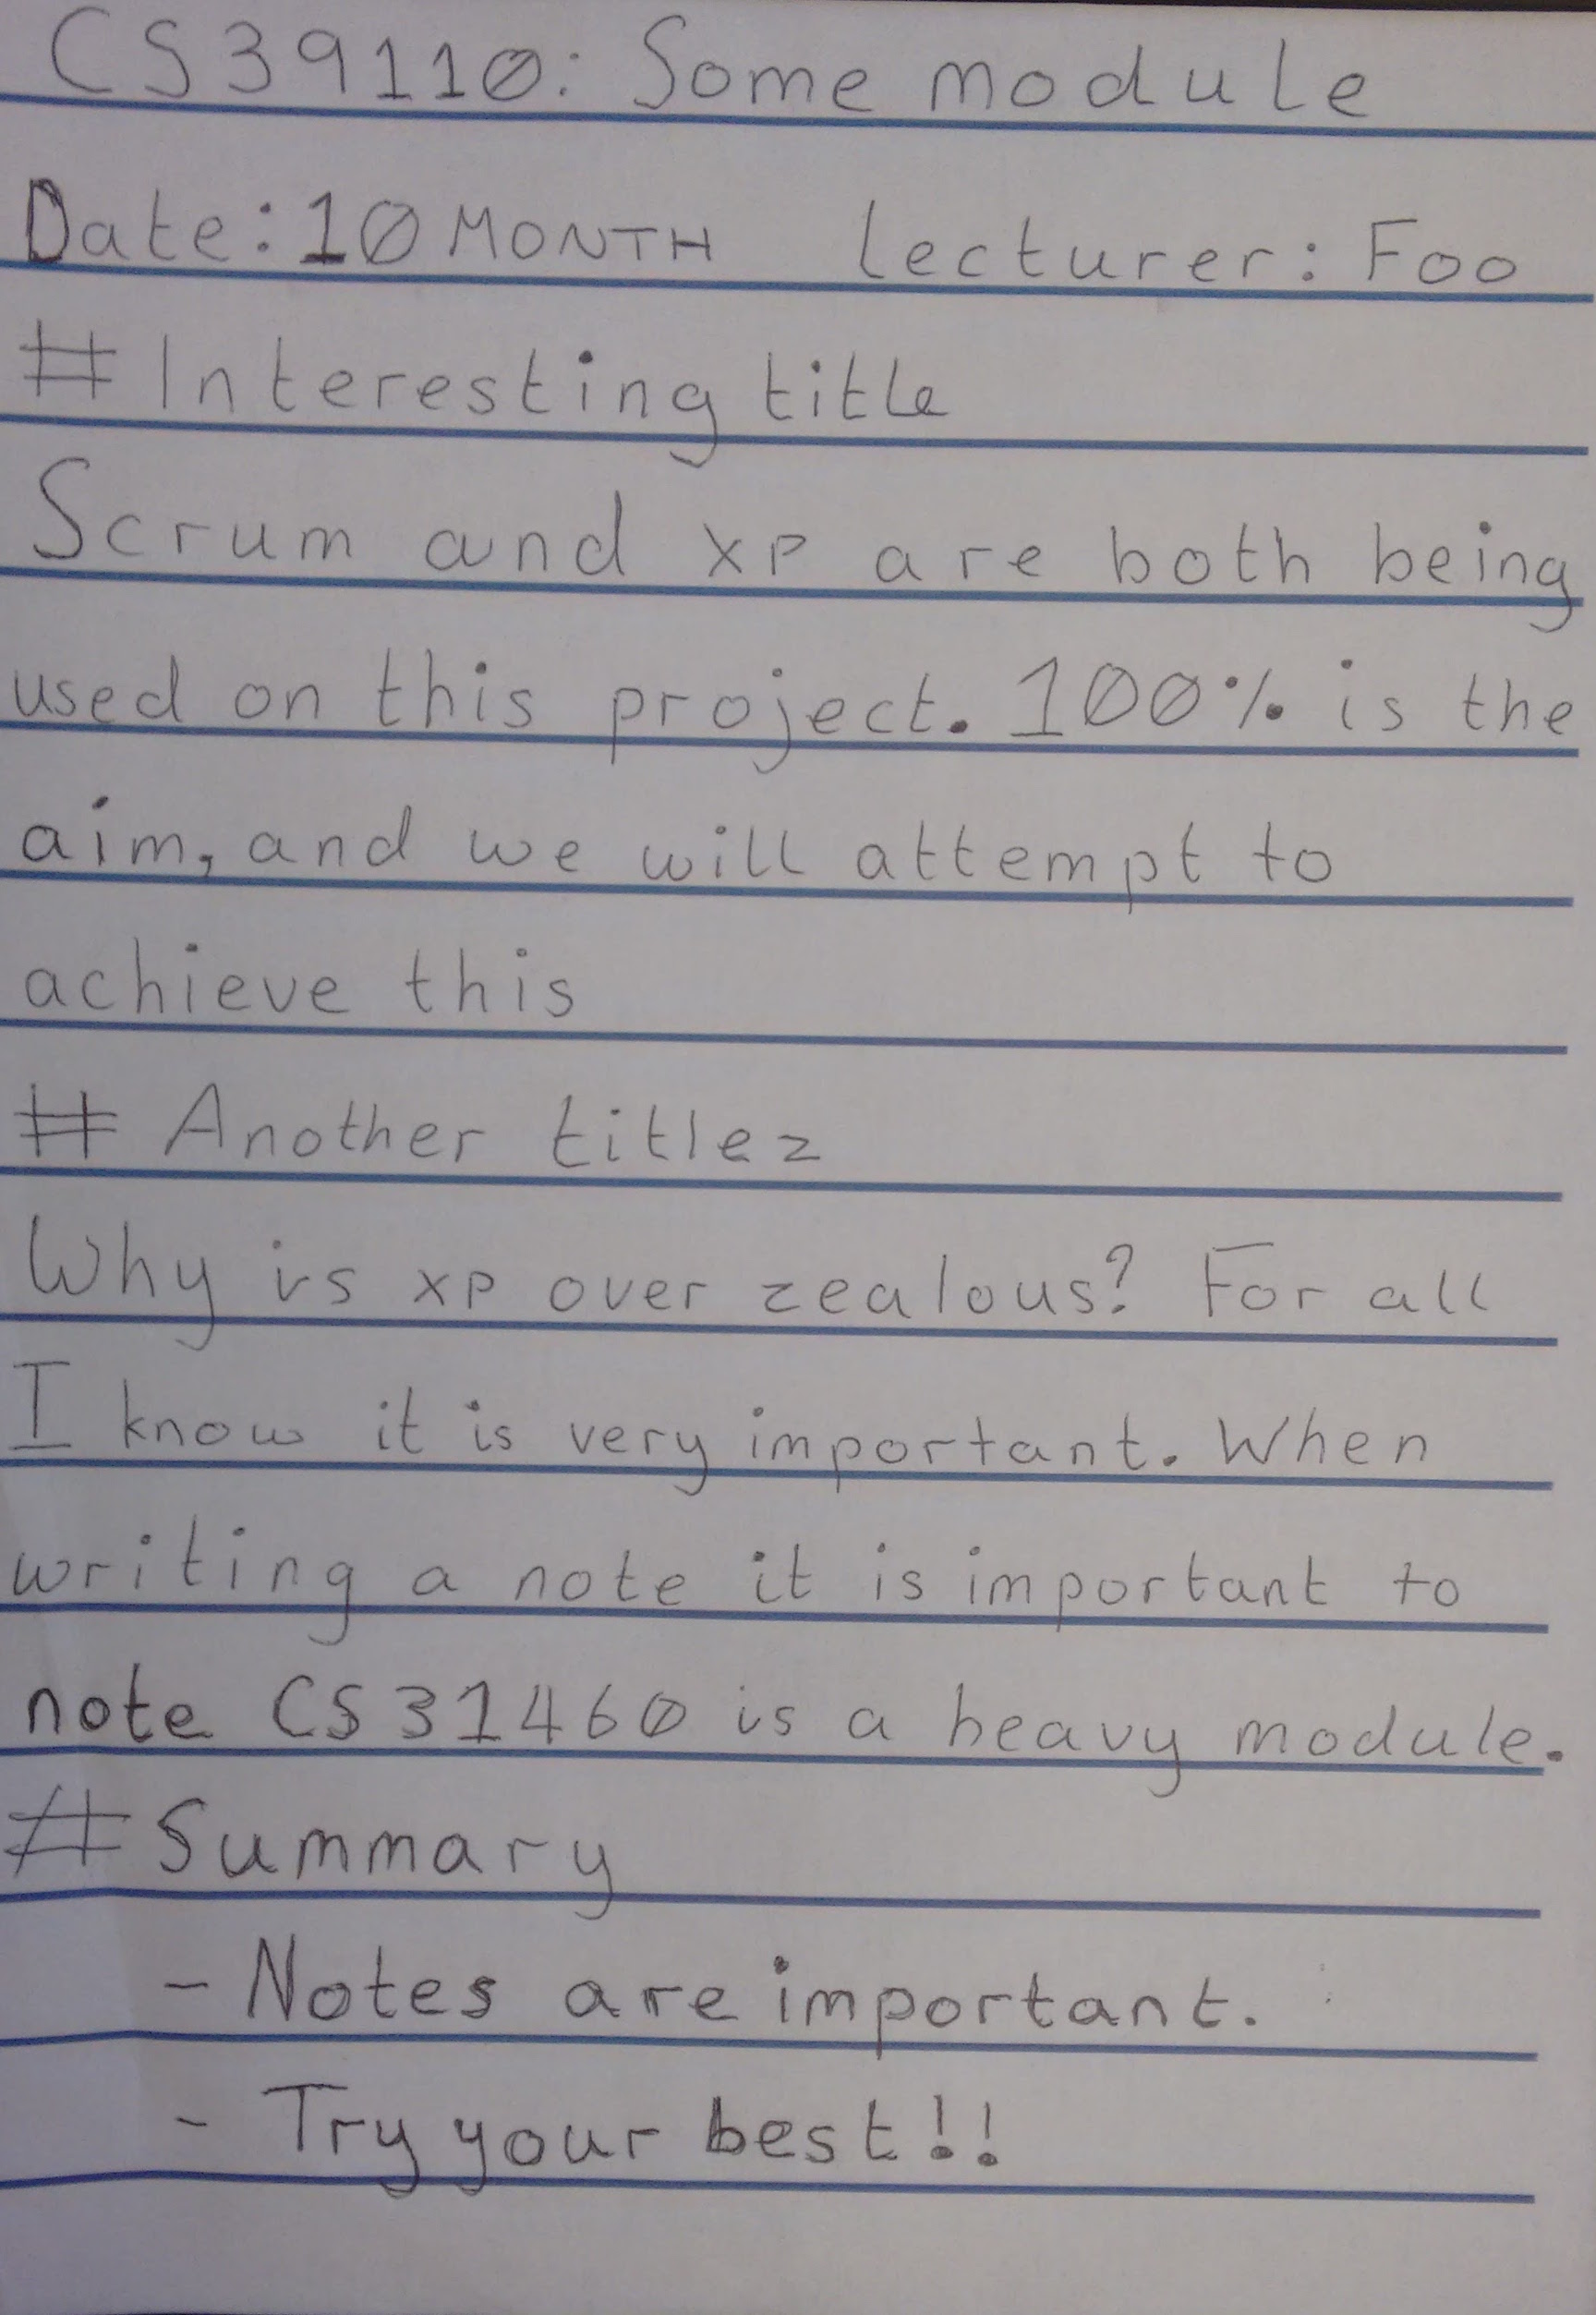 CS39110: Some module
Date: 10 MONTH lecturer: Foo
# Interesting title
Scrum and xp are both being
used on this project. 100% is the
aim, and we will attempt to
achieve this
# Another title2
Why is xp over zealous? For all
I know it is very important. When
writing a note it is important to
note CS31460 is a heavy module.
# Summary
- Notes are important.
- Try your best!!